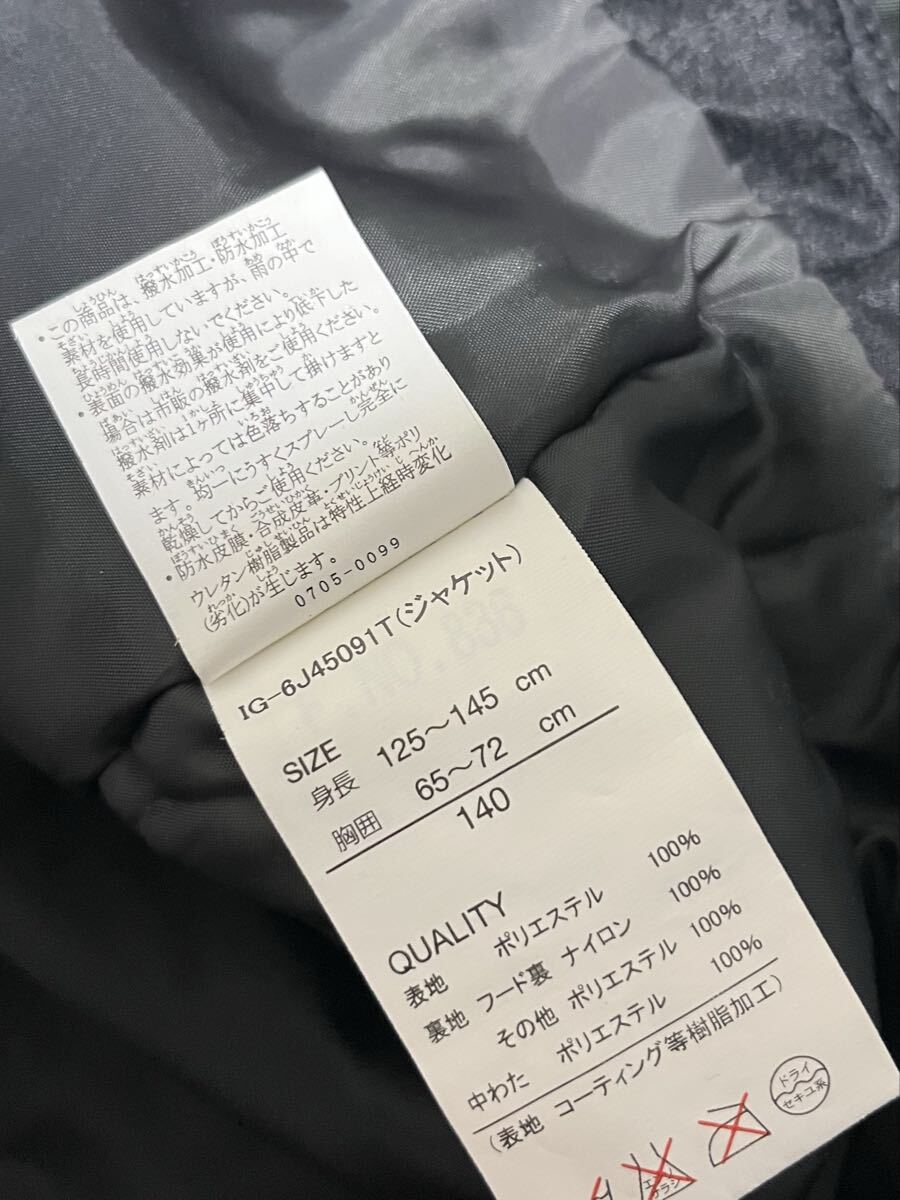 ・この商品は、撥水加工・防水加工
素材を使用していますが、雨の中で
長時間使用しないでください。
・表面の撥水効果が使用により低下した
場合は市販の撥水剤をご使用ください。
撥水剤は1ヶ所に集中して掛けますと
素材によっては色落ちすることがあり
ます。均一にうすくスプレーし完全に
乾燥してからご使用ください。
・防水皮膜・合成皮革・プリント等ポリ
ウレタン樹脂製品は特性上経時変化
(劣化)が生じます。
0705-0099
IG-6J45091T(ジャケット)
SIZE
身長 125~145 cm
胸囲 65~72 cm
140
QUALITY
表地 ポリエステル 100%
裏地 フード裏 ナイロン 100%
その他 ポリエステル 100%
中わた ポリエステル 100%
(表地 コーティング等樹脂加工)
ドライ
セキユ系